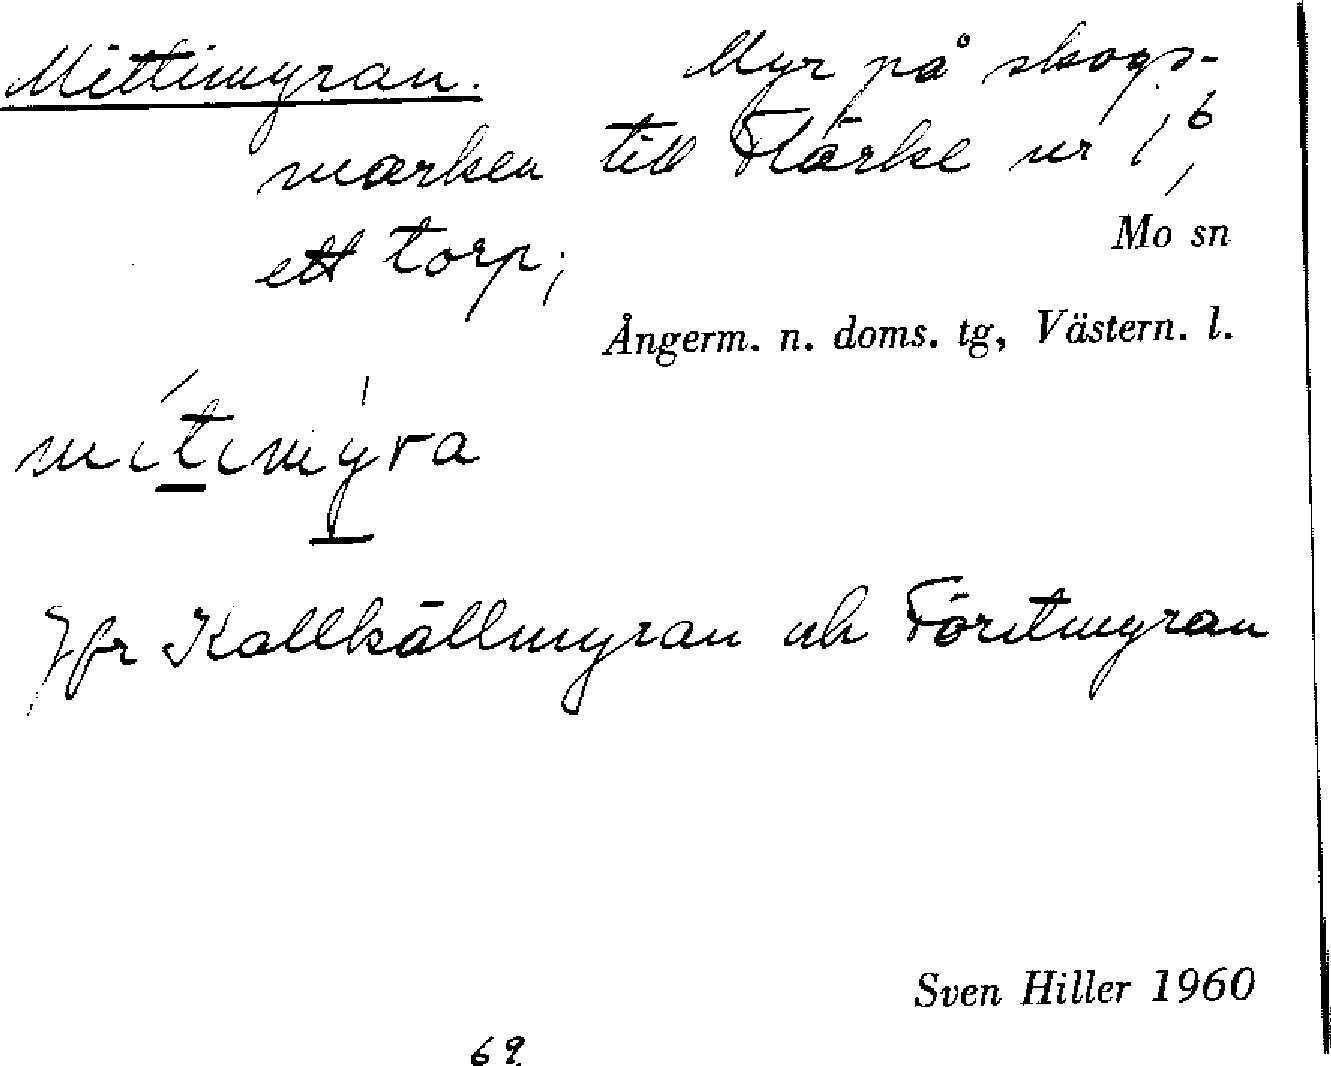 Mittimyran. Myr på skogs-
marken till Flärke nr 1,6,
ett torp;
Mo sn
Ångerm. n. doms. tg, Västern. l.
mítimýra
Jfr Kallkällmyran ochFöritmyran
Sven Hiller 1960
69